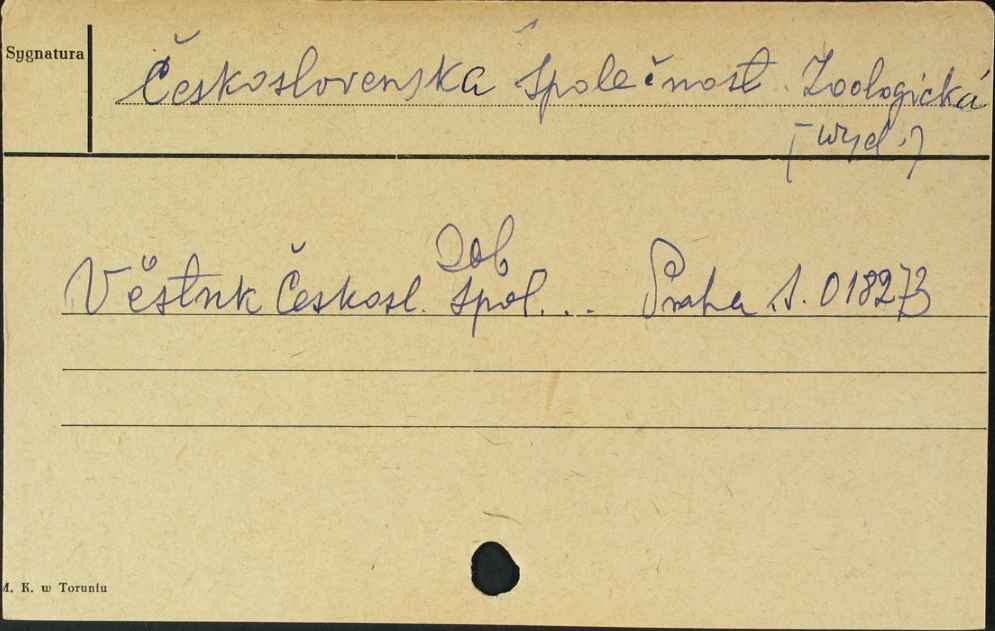 Sygnatura
Československa Společnost Zoologická
(wyd.)
Zob
Věstnk Českosl. Spol... Praha A. 018273
M. K. w Toruniu